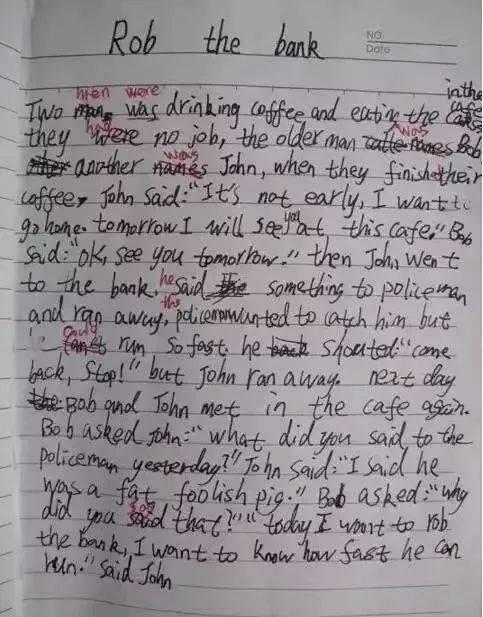 Rob the bank
NO
Date
men were in the cafe
Two man was drinking coffee and eating the
had was
they were no job, the older man names Bob
was
another names John, when they finished their
coffee, John said:"It's not early, I want to
you
go home. tomorrow I will see at this cafe." Bob
said:"ok, see you tomorrow." then John went
he
to the bank, said something to policeman
the
and ran away, policeman wanted to catch him but
could
can't run so fast. he back shouted:"come
back, Stop!" but John ran away. next day
the Bob and John met in the cafe again.
Bob asked John:"what did you said to the
policeman yesterday?" John said:"I said he
was a fat foolish pig." Bob asked:"why
say
did you said that?" "today I want to rob
the bank, I want to know how fast he can
run." said John